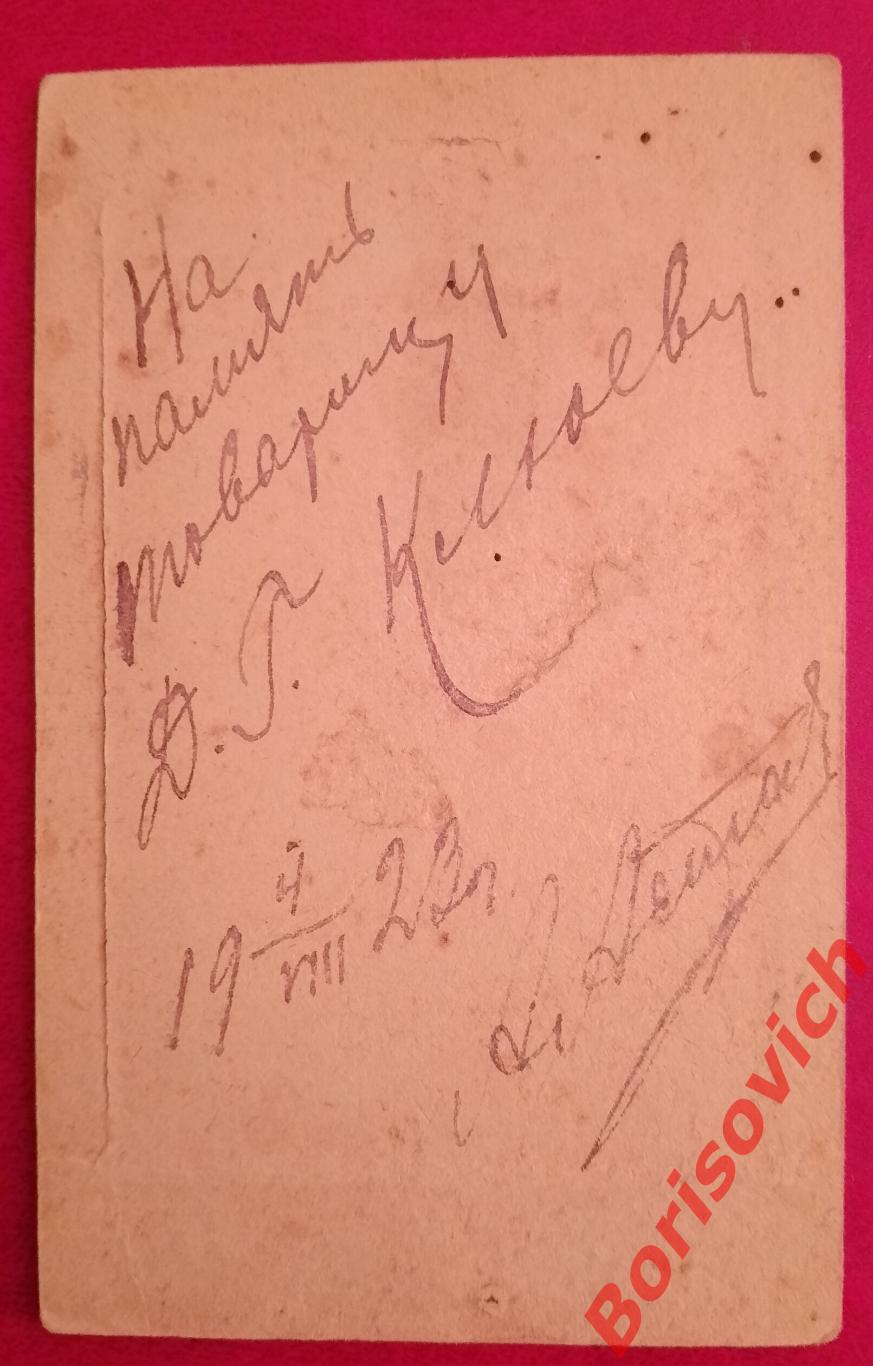 На
память
товарищу
Д. Г. Клюеву..
19 4/VIII 23 г.
Borisovich